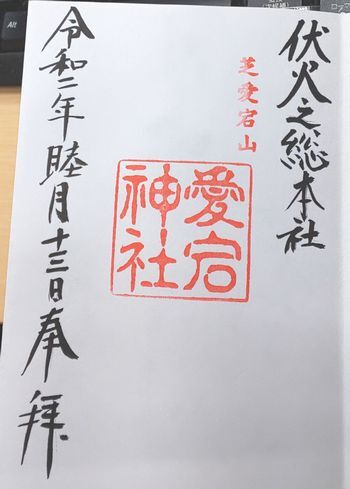 伏火之総本社
芝愛宕山
愛宕
神社
令和二年睦月十三日奉拝
Alt